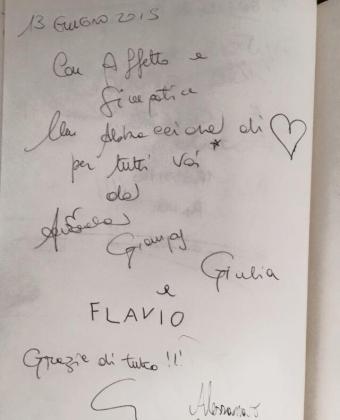 13 GIUGNO 2015
Con Affetto e
Simpatia
Un abbraccione di ♡
per tutti voi *
da
Giampy
Giulia
e
FLAVIO
Grazie di tutto !!!